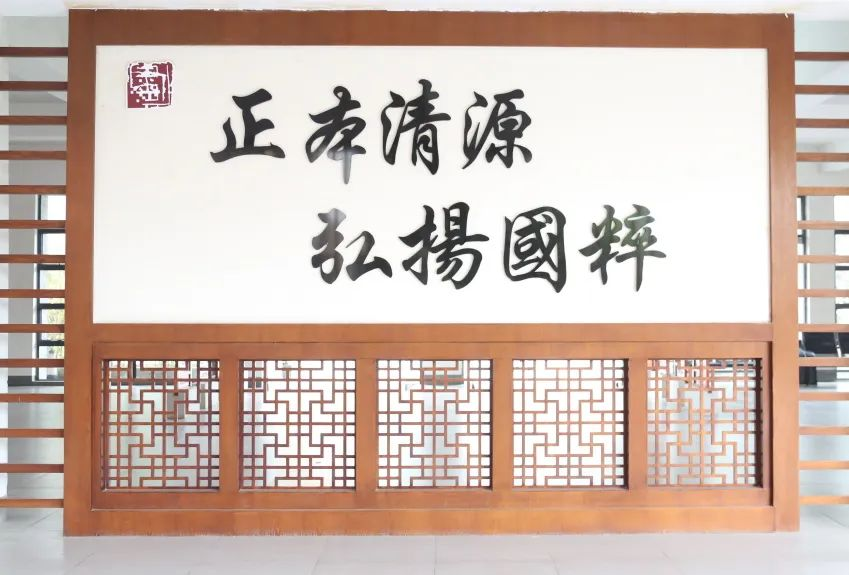 正本清源
弘揚國粹